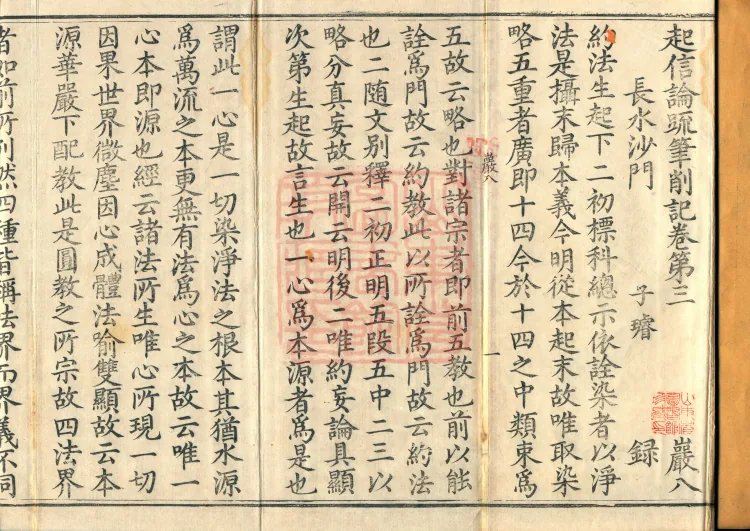 起信論疏筆削記卷第三 嚴八
長水沙門 子璿 録
約法生起下二初標科總示依詮染者以淨
法是攝末歸本義今明從本起末故唯取染
略五重者廣即十四今於十四之中類束為
嚴八 一
五故云略也對諸宗者即前五教也前以能
詮為門故云約教此以所詮為門故云約法
也二随文別釋二初正明五段五中二三以
略分真妄故云開云明後二唯約妄論具顯
次第生起故言生也一心為本源者為是也
謂此一心是一切染淨法之根本其猶水源
為萬流之本更無有法為心之本故云唯一
心本即源也經云諸法所生唯心所現一切
因果世界微塵因心成體法喻雙顯故云本
源華嚴下配教此是圓教之所宗故四法界
者如前所列然四種皆稱法界而界義不同